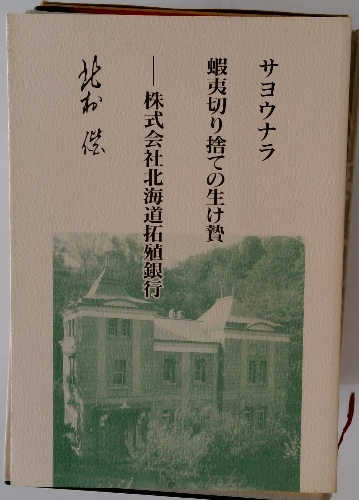 サヨウナラ
蝦夷切り捨ての生け贄
──株式会社北海道拓殖銀行